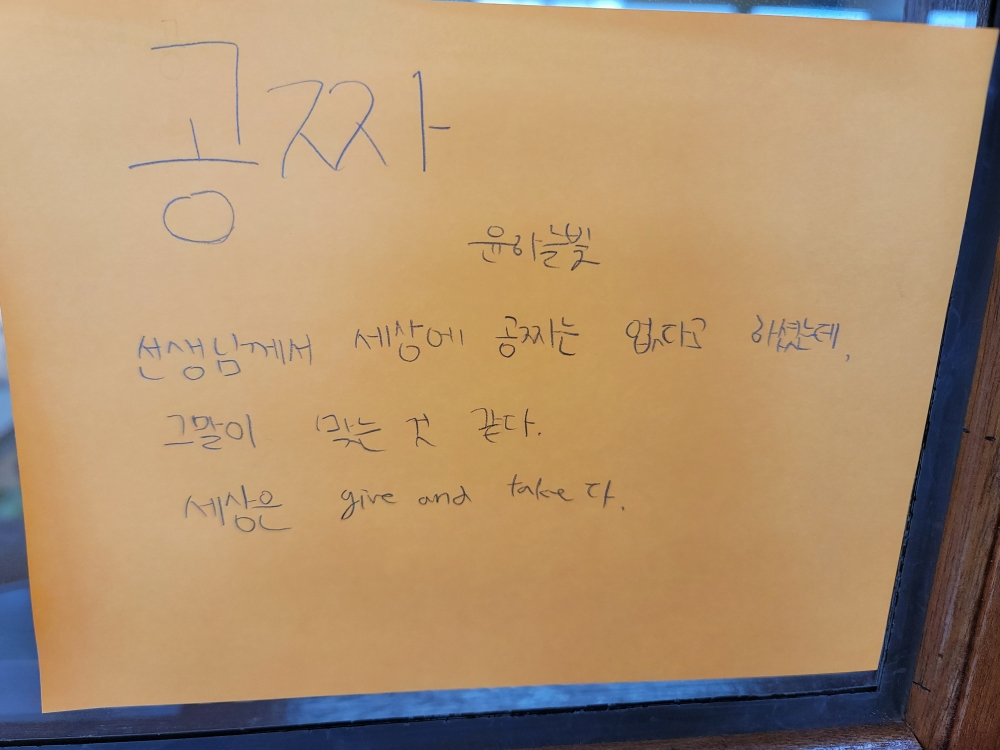 공짜
윤하늘빛
선생님께서 세상에 공짜는 없다고 하셨는데,
그말이 맞는 것 같다.
세상은 give and take 다.